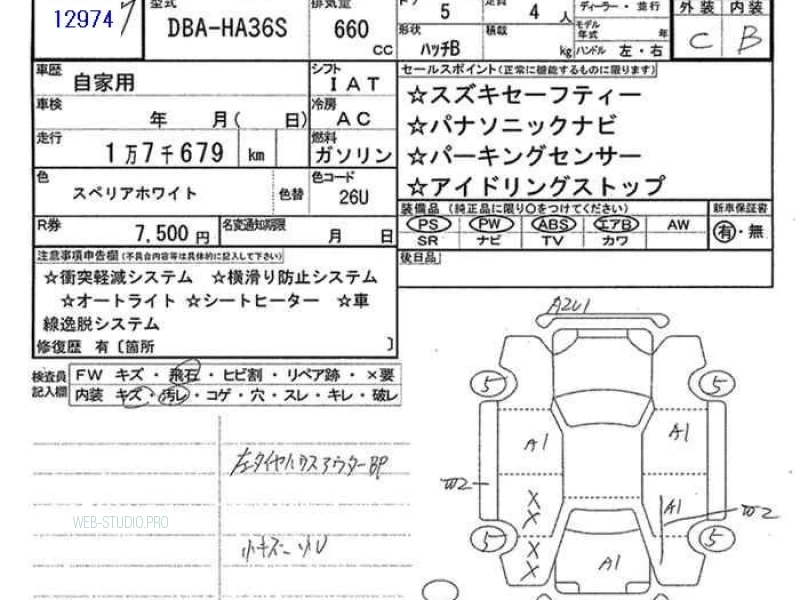 12974
型式 排気量 ドア 定員 ディーラー・並行 外装 内装
DBA-HA36S 660 cc 5 4 人 モデル年式 年 C B
形状 ハッチB 積載 kg ハンドル 左・右
車歴 自家用 シフト IAT
車検 年 月( 日) 冷房 AC
走行 1万7千679 km 燃料 ガソリン
色 スペリアホワイト 色替 色コード 26U
R券 7,500円 名変通知期限 月 日
セールスポイント(正常に機能するものに限ります)
☆スズキセーフティー
☆パナソニックナビ
☆パーキングセンサー
☆アイドリングストップ
装備品 (純正品に限り○をつけてください) 新車保証書
PS PW ABS エアB AW 有・無
SR ナビ TV カワ
後日品
注意事項申告欄(不具合内容等は具体的に記入して下さい)
☆衝突軽減システム ☆横滑り防止システム
☆オートライト ☆シートヒーター ☆車
線逸脱システム
修復歴 有〔箇所 〕
検査員記入欄 FW キズ・飛石・ヒビ割・リペア跡・×要
内装 キズ・汚レ・コゲ・穴・スレ・キレ・破レ
左タイヤハウスアウターBP
WEB-STUDIO.PRO
A2U1
5 5
A1 A1
W2 X X A1 W2
5 X X 5
A1